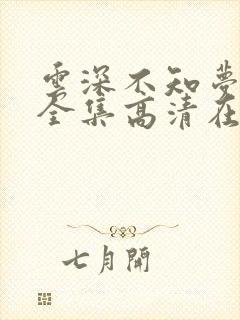 雲深不知夢
全集高清在
七月開